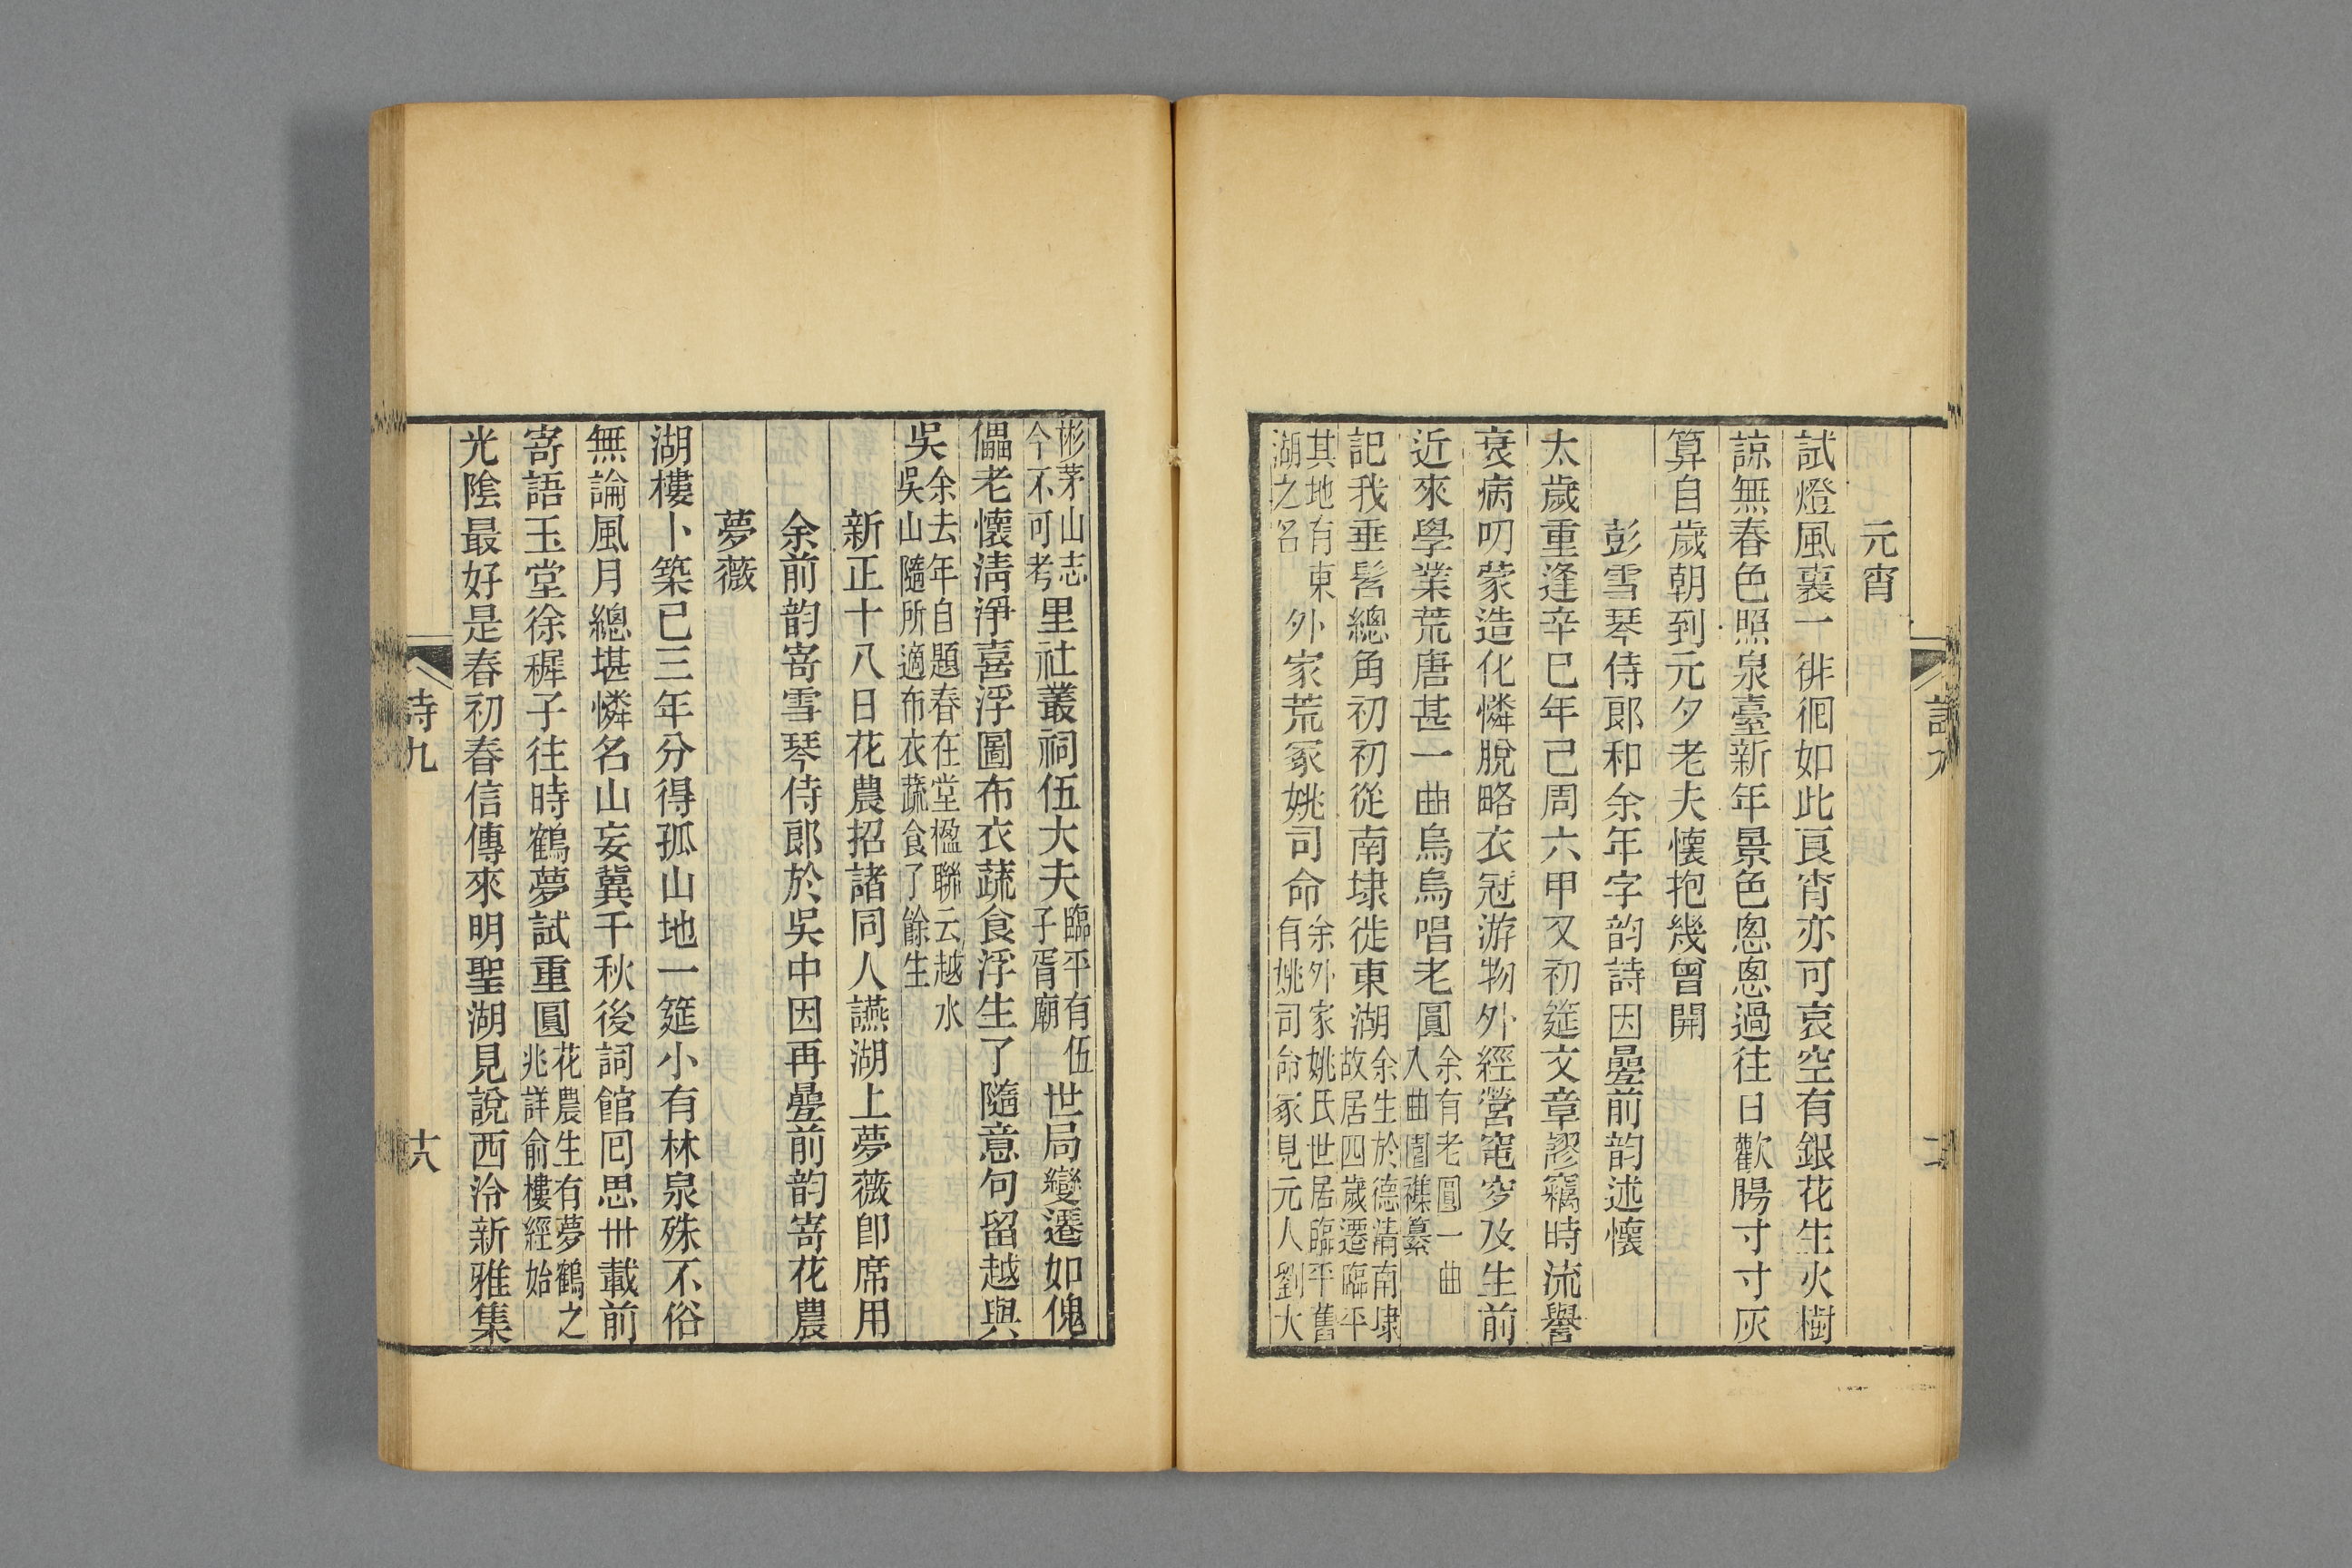 元宵
試燈風裏一徘徊如此良宵亦可哀空有銀花生火樹
諒無春色照泉臺新年景色悤悤過往日歡腸寸寸灰
算自歲朝到元夕老夫懷抱幾曾開
彭雪琴侍郎和余年字韵詩因疊前韵述懷
太歲重逢辛巳年己周六甲又初筵文章謬竊時流譽
衰病叨蒙造化憐脫略衣冠游物外經營窀穸及生前
近來學業荒唐甚一曲烏烏唱老圓余有老圓一曲入曲園襍纂
記我垂髫總角初初從南埭徙東湖余生於德清南埭故居四歲遷臨平
其地有東湖之名外家荒冢姚司命余外家姚氏世居臨平舊有姚司命冢見元人劉大
彬茅山志今不可考里社叢祠伍大夫臨平有伍子胥廟世局變遷如傀
儡老懷淸淨喜浮圖布衣蔬食浮生了隨意句留越與
吳余去年自題春在堂楹聯云越水吳山隨所適布衣蔬食了餘生
新正十八日花農招諸同人讌湖上夢薇卽席用
余前韵寄雪琴侍郎於吳中因再疊前韵寄花農
夢薇
湖樓卜築已三年分得孤山地一筵小有林泉殊不俗
無論風月總堪憐名山妄冀千秋後詞館回思卅載前
寄語玉堂徐穉子往時鶴夢試重圓花農生有夢鶴之兆詳俞樓經始
光陰最好是春初春信傳來明聖湖見說西泠新雅集
詩九
十八